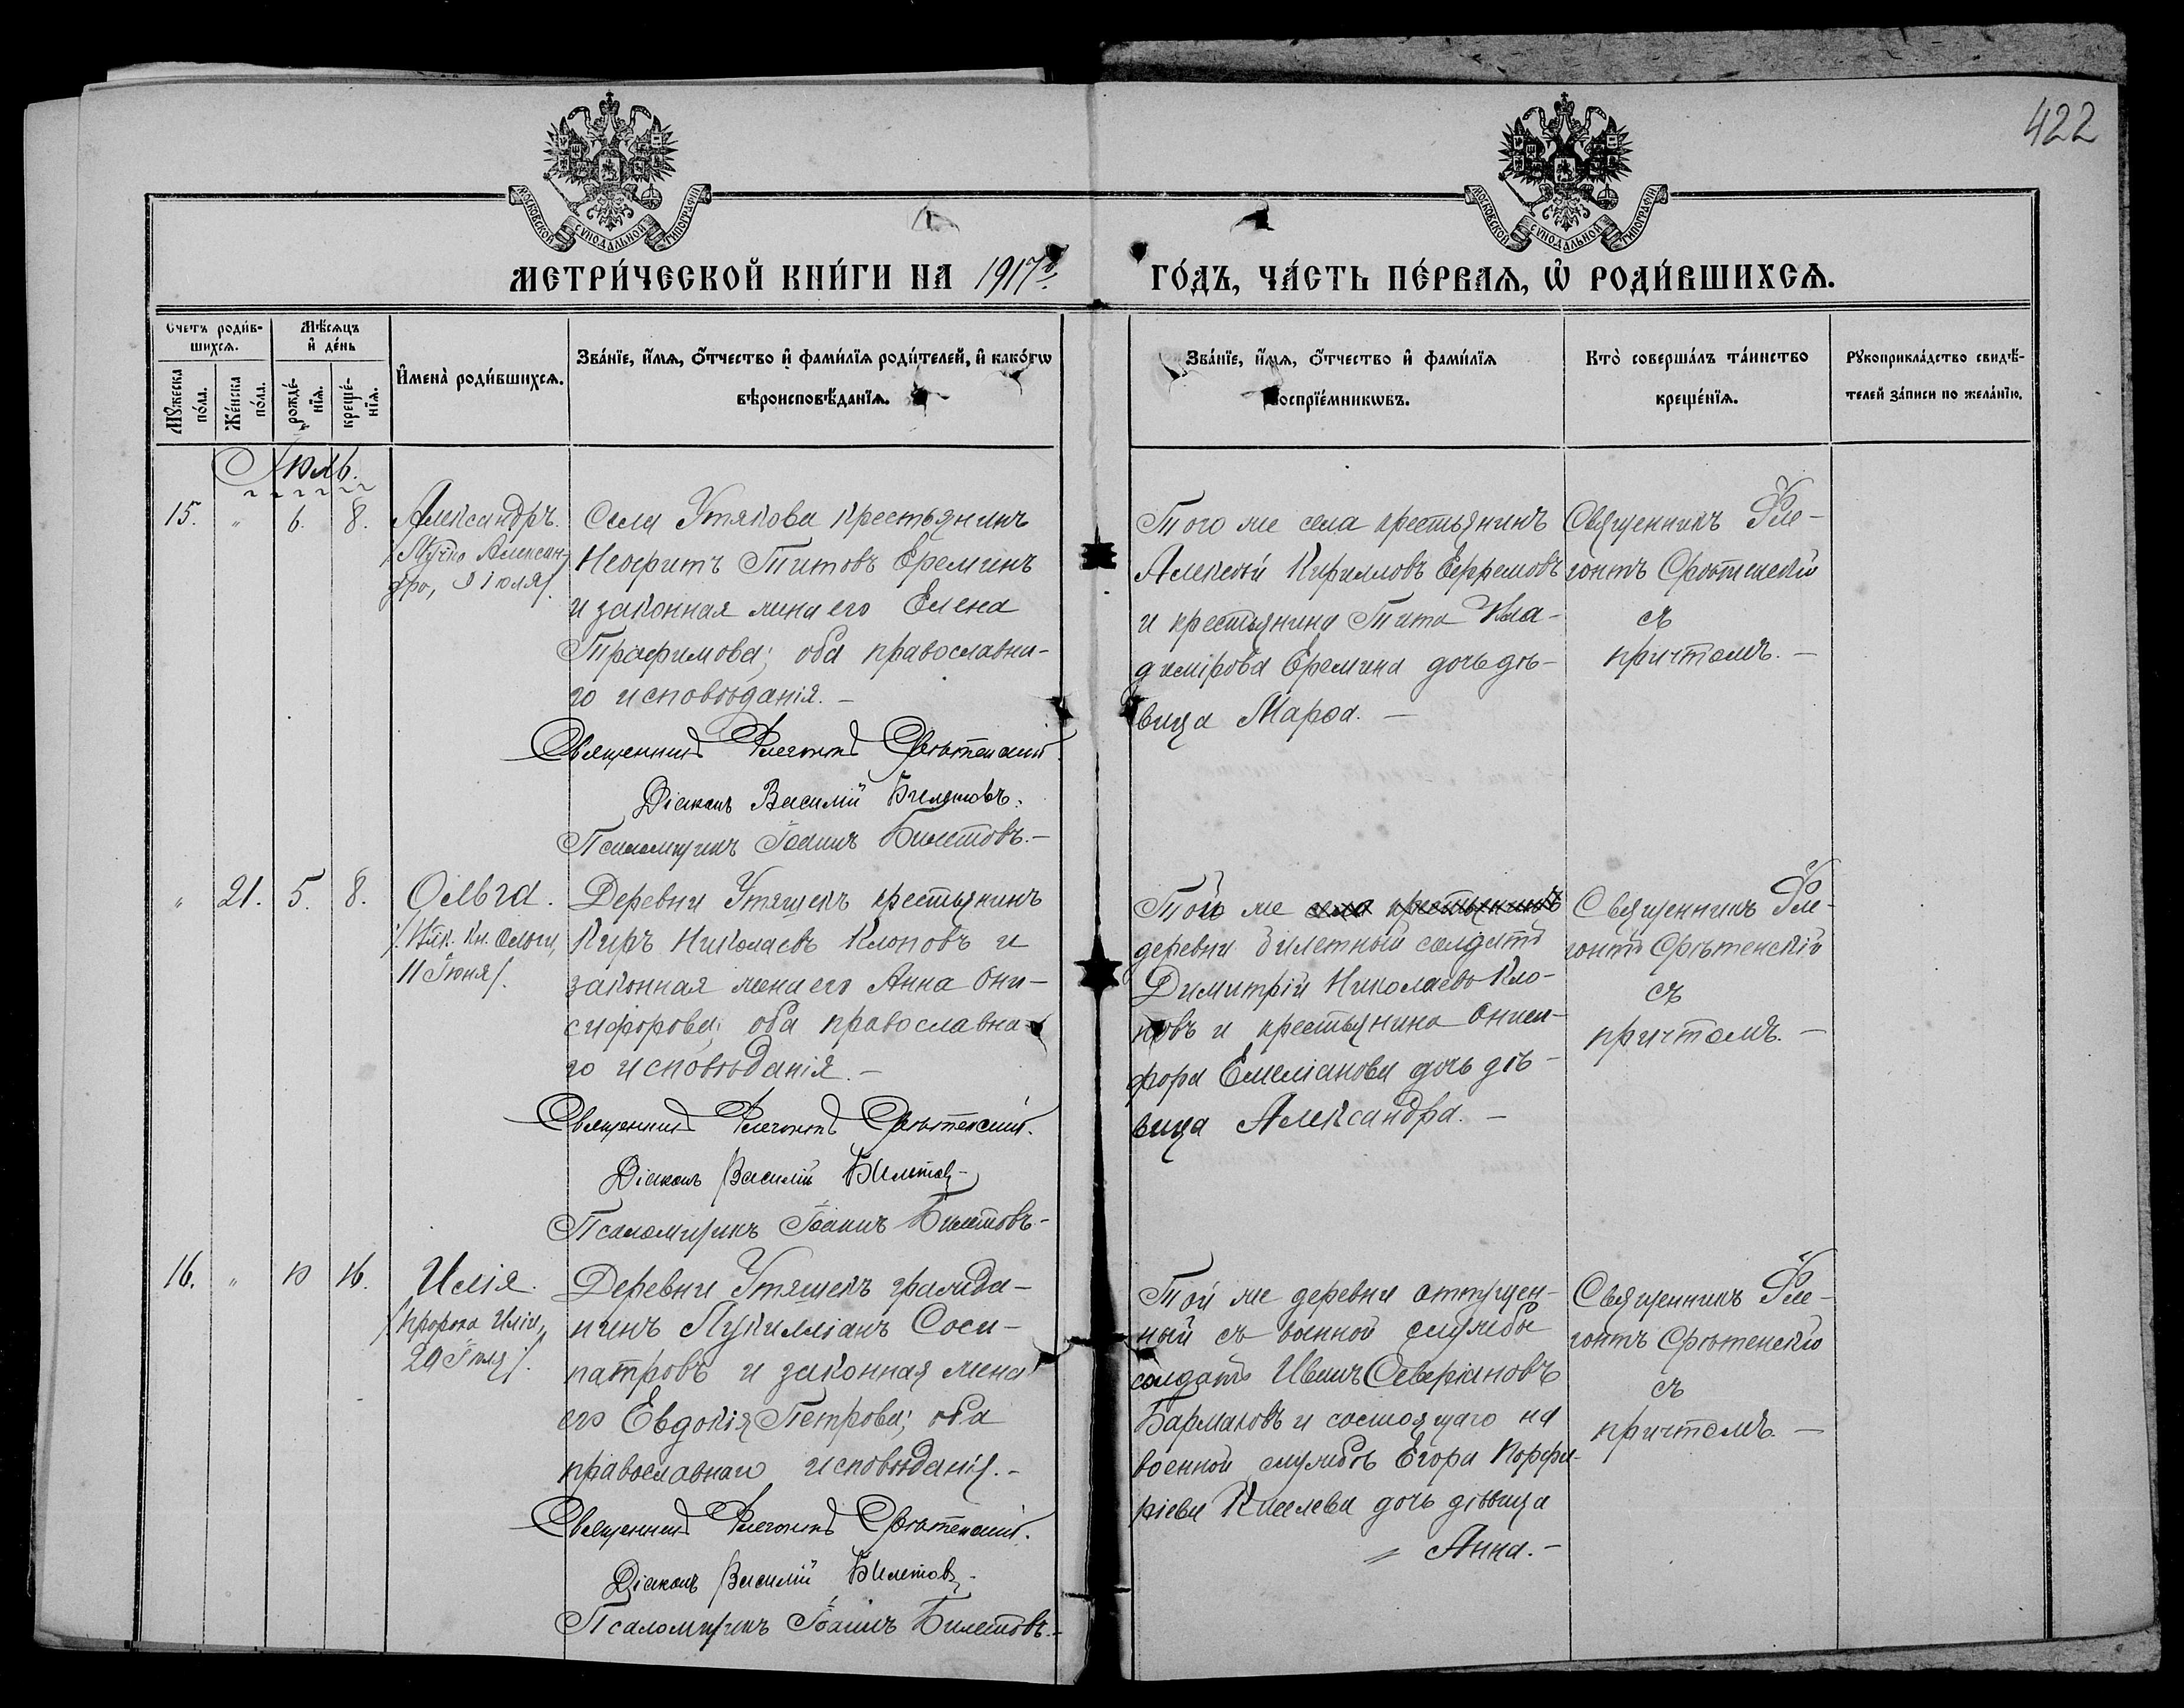 422
МОСКОВСКОЙ СУНОДАЛЬНОЙ ТИПОГРАФІИ
МОСКОВСКОЙ СУНОДАЛЬНОЙ ТИПОГРАФІИ
МЕТРИ́ЧЕСКОЙ КНИ́ГИ НА 1917 г. ГО́ДЪ, ЧА́СТЬ ПЕ́РВАѦ, Ѡ҆ РОДИ́ВШИХСѦ.
Счетъ роди́в-
шихсѧ.
Мꙋжеска
по́ла.
Же́нска
по́ла.
Мѣ́сѧцъ
и҆ де́нь
рожде́-
нїѧ.
креще́-
нїѧ.
И҆мена̀ роди́вшихсѧ.
Зва́нїе, и҆́мѧ, ѻ҆́тчество и҆ фами́лїѧ роди́телей, и҆ како́гѡ
вѣроисповѣ́данїѧ.
Зва́нїе, и҆́мѧ, ѻ҆́тчество и҆ фами́лїѧ
воспрїе́мникѡвъ.
Кто̀ соверша́лъ та́инство
креще́нїѧ.
Рꙋкоприкла́дство свидѣ́-
телей за́писи по жела́нїю.
Іюль.
15. " 6. 8.
Александръ.
/Мучка Алексан-
дра, 9 іюля/.
Села Утякова крестьянинъ
Неофитъ Титовъ Ереминъ
и законная жена его Елена
Трофимова; оба православна-
го исповѣданія. –
Священникъ Флегонтъ Срѣтенскій.
Діаконъ Василій Билетовъ.
Псаломщикъ Іоаннъ Билетовъ. –
Того же села крестьянинъ
Алексѣй Кирилловъ Ефремовъ
и крестьянина Тита Вла-
димірова Еремина дочь дѣ-
вица Марѳа. –
Священникъ Фле-
гонтъ Срѣтенскій
съ
причтомъ. –
" 21. 5. 8.
Ольга.
/Вел. Кн. Ольги,
11 Іюня/.
Деревни Утяшекъ крестьянинъ
Киръ Николаевъ Клоповъ и
законная жена его Анна Они-
сифорова; оба православна-
го исповѣданія. –
Священникъ Флегонтъ Срѣтенскій.
Діаконъ Василій Билетовъ
Псаломщикъ Іоаннъ Билетовъ. –
Той же села крестьянинъ
деревни билетный солдатъ
Димитрій Николаевъ Кло-
повъ и крестьянина Ониси-
фора Емеліанова дочь дѣ-
вица Александра. –
Священникъ Фле-
гонтъ Срѣтенскій
съ
причтомъ. –
16. " 10 16.
Илія.
/пророка Иліи,
20 Іюля/.
Деревни Утяшекъ гражда-
нинъ Лукилліанъ Соси-
патровъ и законная жена
его Евдокія Петрова; оба
православнаго исповѣданія. –
Священникъ Флегонтъ Срѣтенскій.
Діаконъ Василій Билетовъ
Псаломщикъ Іоаннъ Билетовъ. –
Той же деревни отпущен-
ный съ военной службы
солдатъ Иванъ Северіановъ
Бармаковъ и состоящаго на
военной службѣ Егора Порфи-
ріева Киселева дочь дѣвица
Анна. –
Священникъ Фле-
гонтъ Срѣтенскій
съ
причтомъ. –